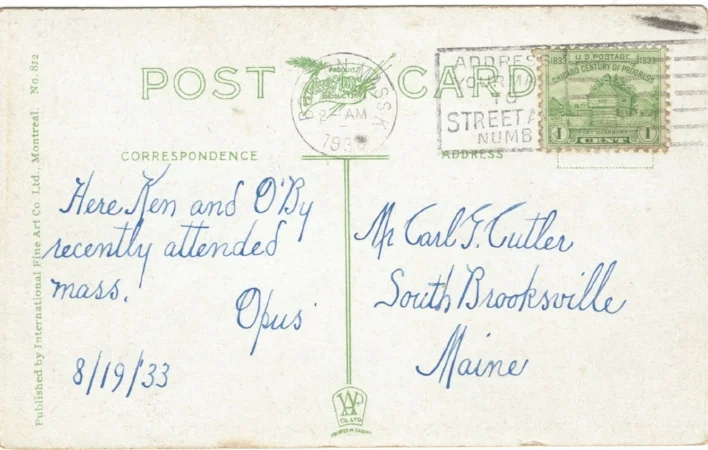 POST CARD
ADDRES
YOUR MA
TO
STREET A
NUMB
2- AM
193
U.S. POSTAGE
1833 1933
CHICAGO CENTURY OF PROGRESS
FORT DEARBORN
1 1
CENT
CORRESPONDENCE
ADDRESS
Here Ken and O'By
recently attended
mass.
Opus
8/19/33
Mr Carl G. Cutler
South Brooksville
Maine
Published by International Fine Art Co. Ltd., Montreal. No. 812
CO. LTD.